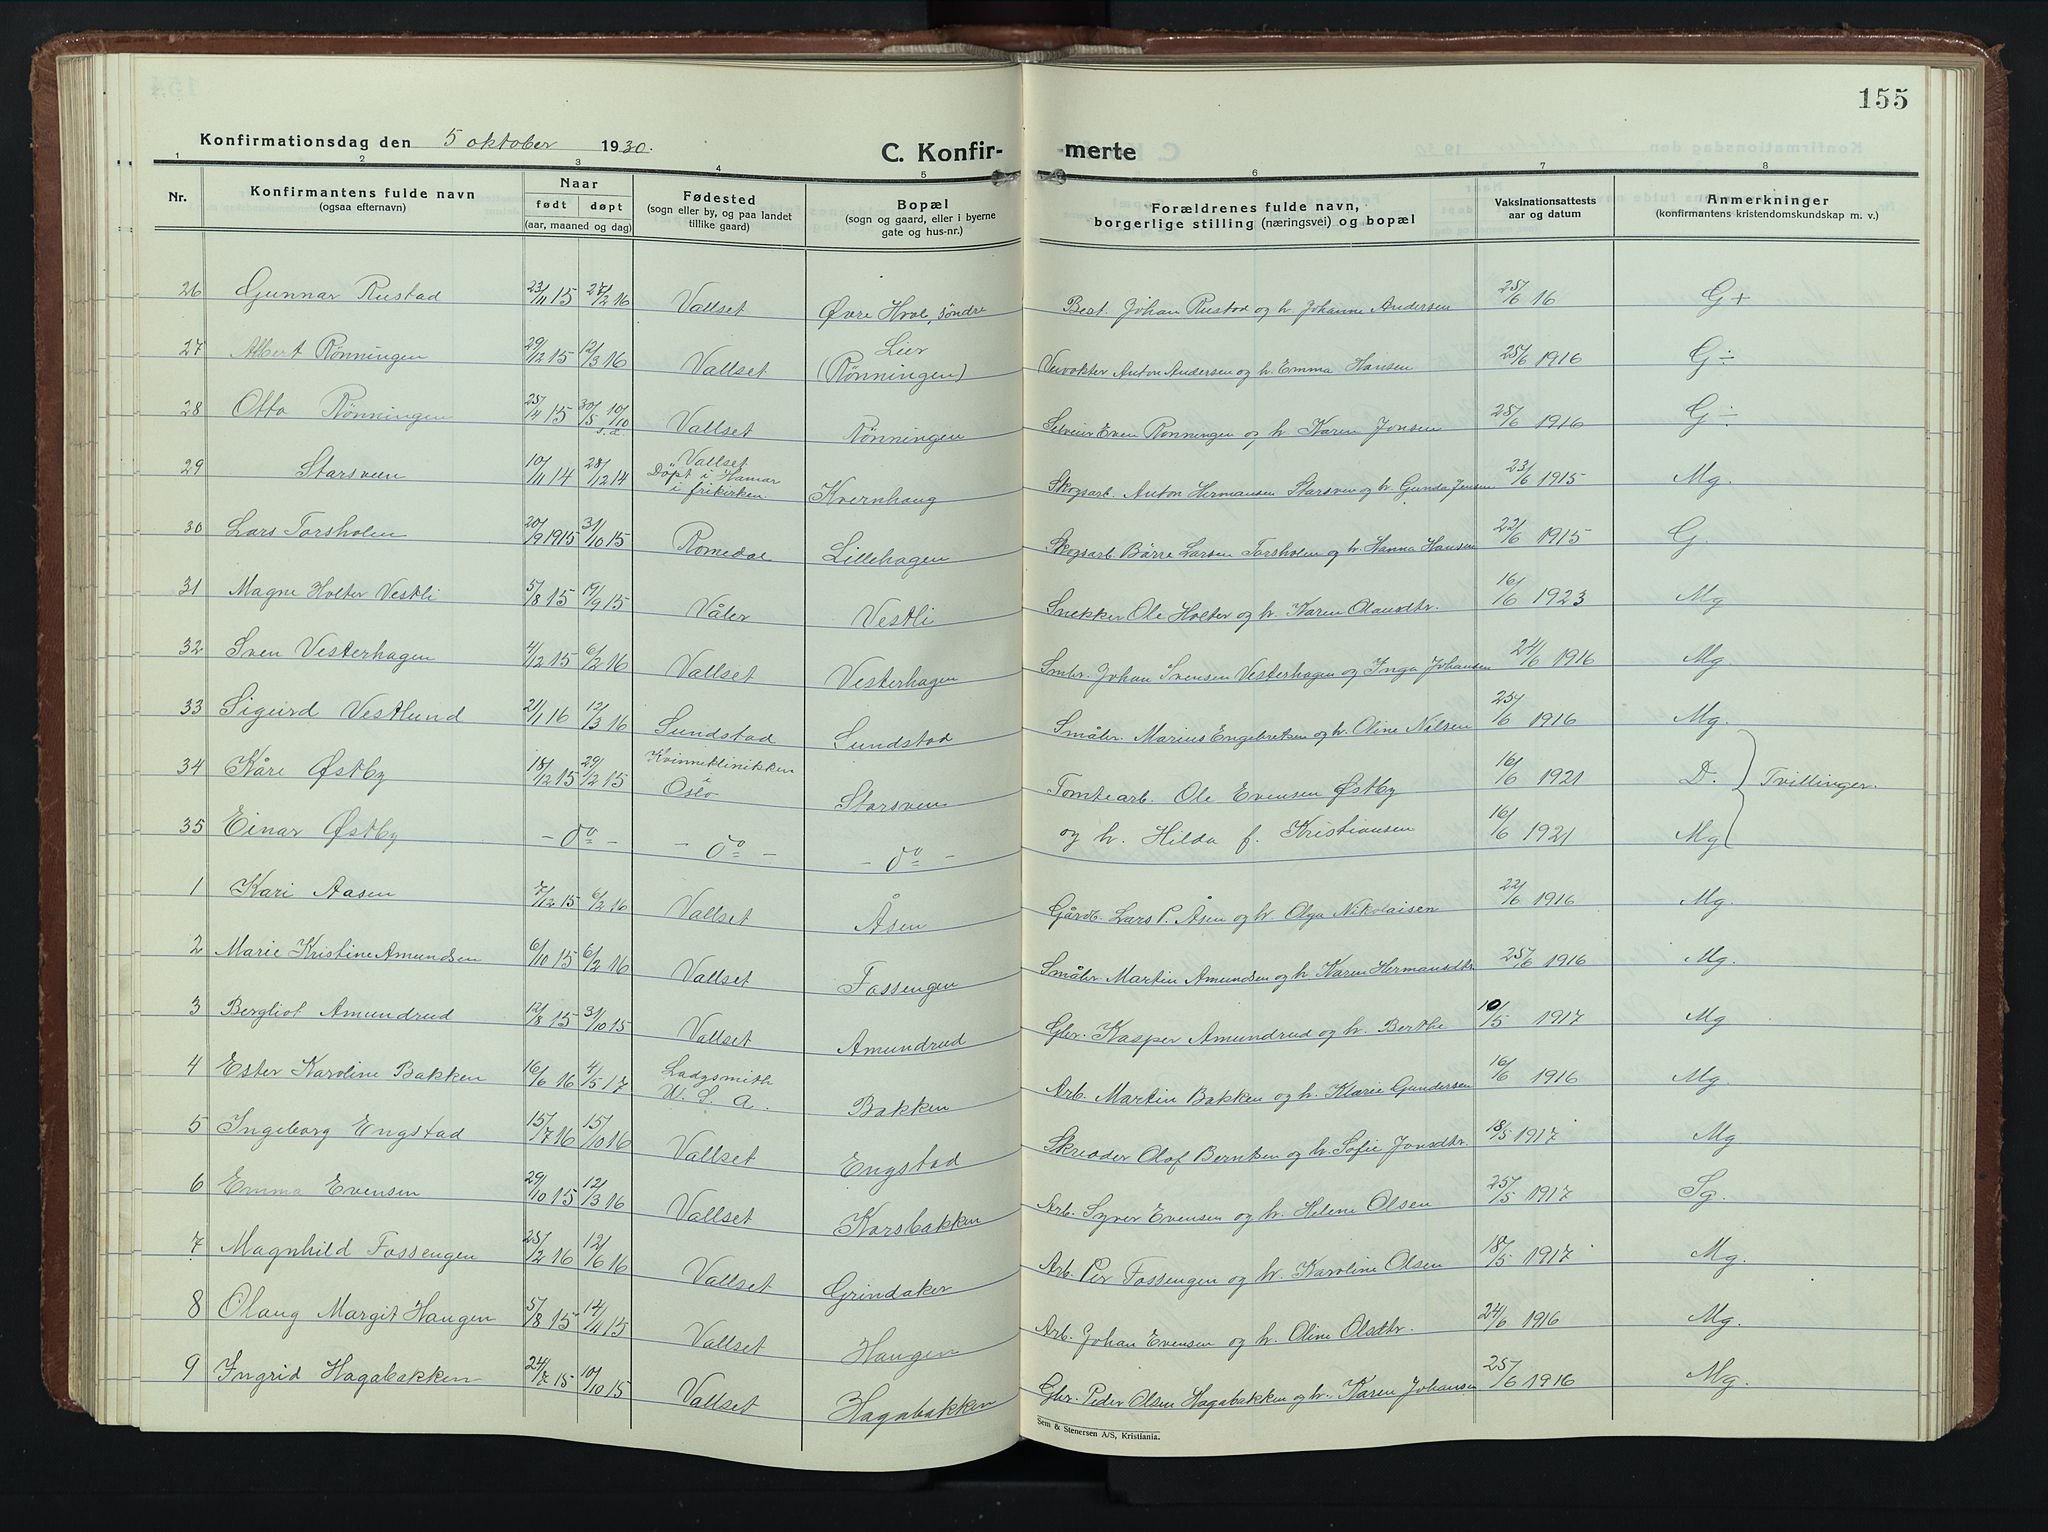 155
Konfirmationsdag den 5 oktober 1930.
C. Konfir-merte
1 2 3 4 5 6 7 8
Nr. Konfirmantens fulde navn (ogsaa efternavn) Naar født døpt (aar, maaned og dag) Fødested (sogn eller by, og paa landet tillike gaard) Bopæl (sogn og gaard, eller i byerne gate og hus-nr.) Forældrenes fulde navn, borgerlige stilling (næringsvei) og bopæl Vaksinationsattests aar og datum Anmerkninger (konfirmantens kristendomskundskap m. v.)
26 Gunnar Rustad 23/11 15 27/2 16 Vallset Øvre Hvol, søndre Best. Johan Rustad og h. Johanne Andersen 25/6 16 G+
27 Albert Rønningen 29/12 15 12/3 16 Vallset Lier (Rønningen) Anton Andersen og h. Emma Hansen 25/6 1916 G÷
28 Otto Rønningen 25/4 15 30/5 10/10 s.å. Vallset Rønningen Even Rønningen og h. Karen Jonsen 25/6 1916 G÷
29 Starsveen 10/11 14 28/12 14 Vallset Døpt i Hamar i frikirken Kvernhaug Skogsarb. Anton Hermansen Starsven og h. Gunda Jensen 23/6 1915 Mg.
30 Lars Torsholen 20/9 1915 31/10 15 Romedal Lillehagen Skogsarb. Børre Larsen Torsholen og h. Hanna Hansen 22/6 1915 G.
31 Magne Holter Vestli 5/8 15 19/9 15 Våler Vestli Snekker Ole Holter og h. Karen Olausdtr. 16/6 1923 Mg
32 Sven Vesterhagen 4/12 15 6/2 16 Vallset Vesterhagen Smbr. Johan Svensen Vesterhagen og Inga Johansen 24/6 1916 Mg
33 Sigurd Vestlund 21/1 16 12/3 16 Sundstad Sundstad Småbr. Marius Engebretsen og h. Oline Nilsen 25/6 1916 Mg.
34 Kåre Østby 18/12 15 29/12 15 Kvinneklinikken i Oslo Starsven Tomtearb. Ole Evensen Østby 16/6 1921 D. } Tvillinger.
35 Einar Østby - do - - do - - do - og h. Hilda f. Kristiansen 16/6 1921 Mg
1 Kari Aasen 7/12 15 6/2 16 Vallset Åsen Gårdb. Lars P. Åsen og h. Olga Nikolaisen 22/6 1916 Mg.
2 Marie Kristine Amundsen 6/10 15 6/2 16 Vallset Fossengen Småbr. Martin Amundsen og h. Karen Hermansdtr 25/6 1916 Mg.
3 Bergliot Amundrud 12/8 15 31/10 15 Vallset Amundrud Gbr. Kasper Amundrud og h. Berthe 10/5 1917 Mg
4 Ester Karoline Bakken 16/6 16 4/5 17 Ladysmith U. S. A. Bakken Arb. Martin Bakken og h. Marie Gundersen 16/6 1916 Mg.
5 Ingeborg Engstad 15/7 16 15/10 16 Vallset Engstad Skredder Olof Berntsen og h. Sofie Jonsdtr. 18/5 1917 Mg
6 Emma Evensen 29/10 15 12/3 16 Vallset Korsbakken Arb. Syver Evensen og h. Helene Olsen 25/5 1917 Sg.
7 Magnhild Fossengen 25/2 16 12/6 16 Vallset Grindaker Arb. Per Fossengen og h. Karoline Olsen 18/5 1917 Mg.
8 Olaug Margit Haugen 5/8 15 14/11 15 Vallset Haugen Arb. Johan Evensen og h. Oline Olsdtr. 24/6 1916 Mg.
9 Ingrid Hagabakken 24/7 15 10/10 15 Vallset Hagabakken Gbr. Peder Olsen Hagabakken og h. Karen Johansen 25/6 1916 Mg.
Sem & Stenersen A/S, Kristiania.